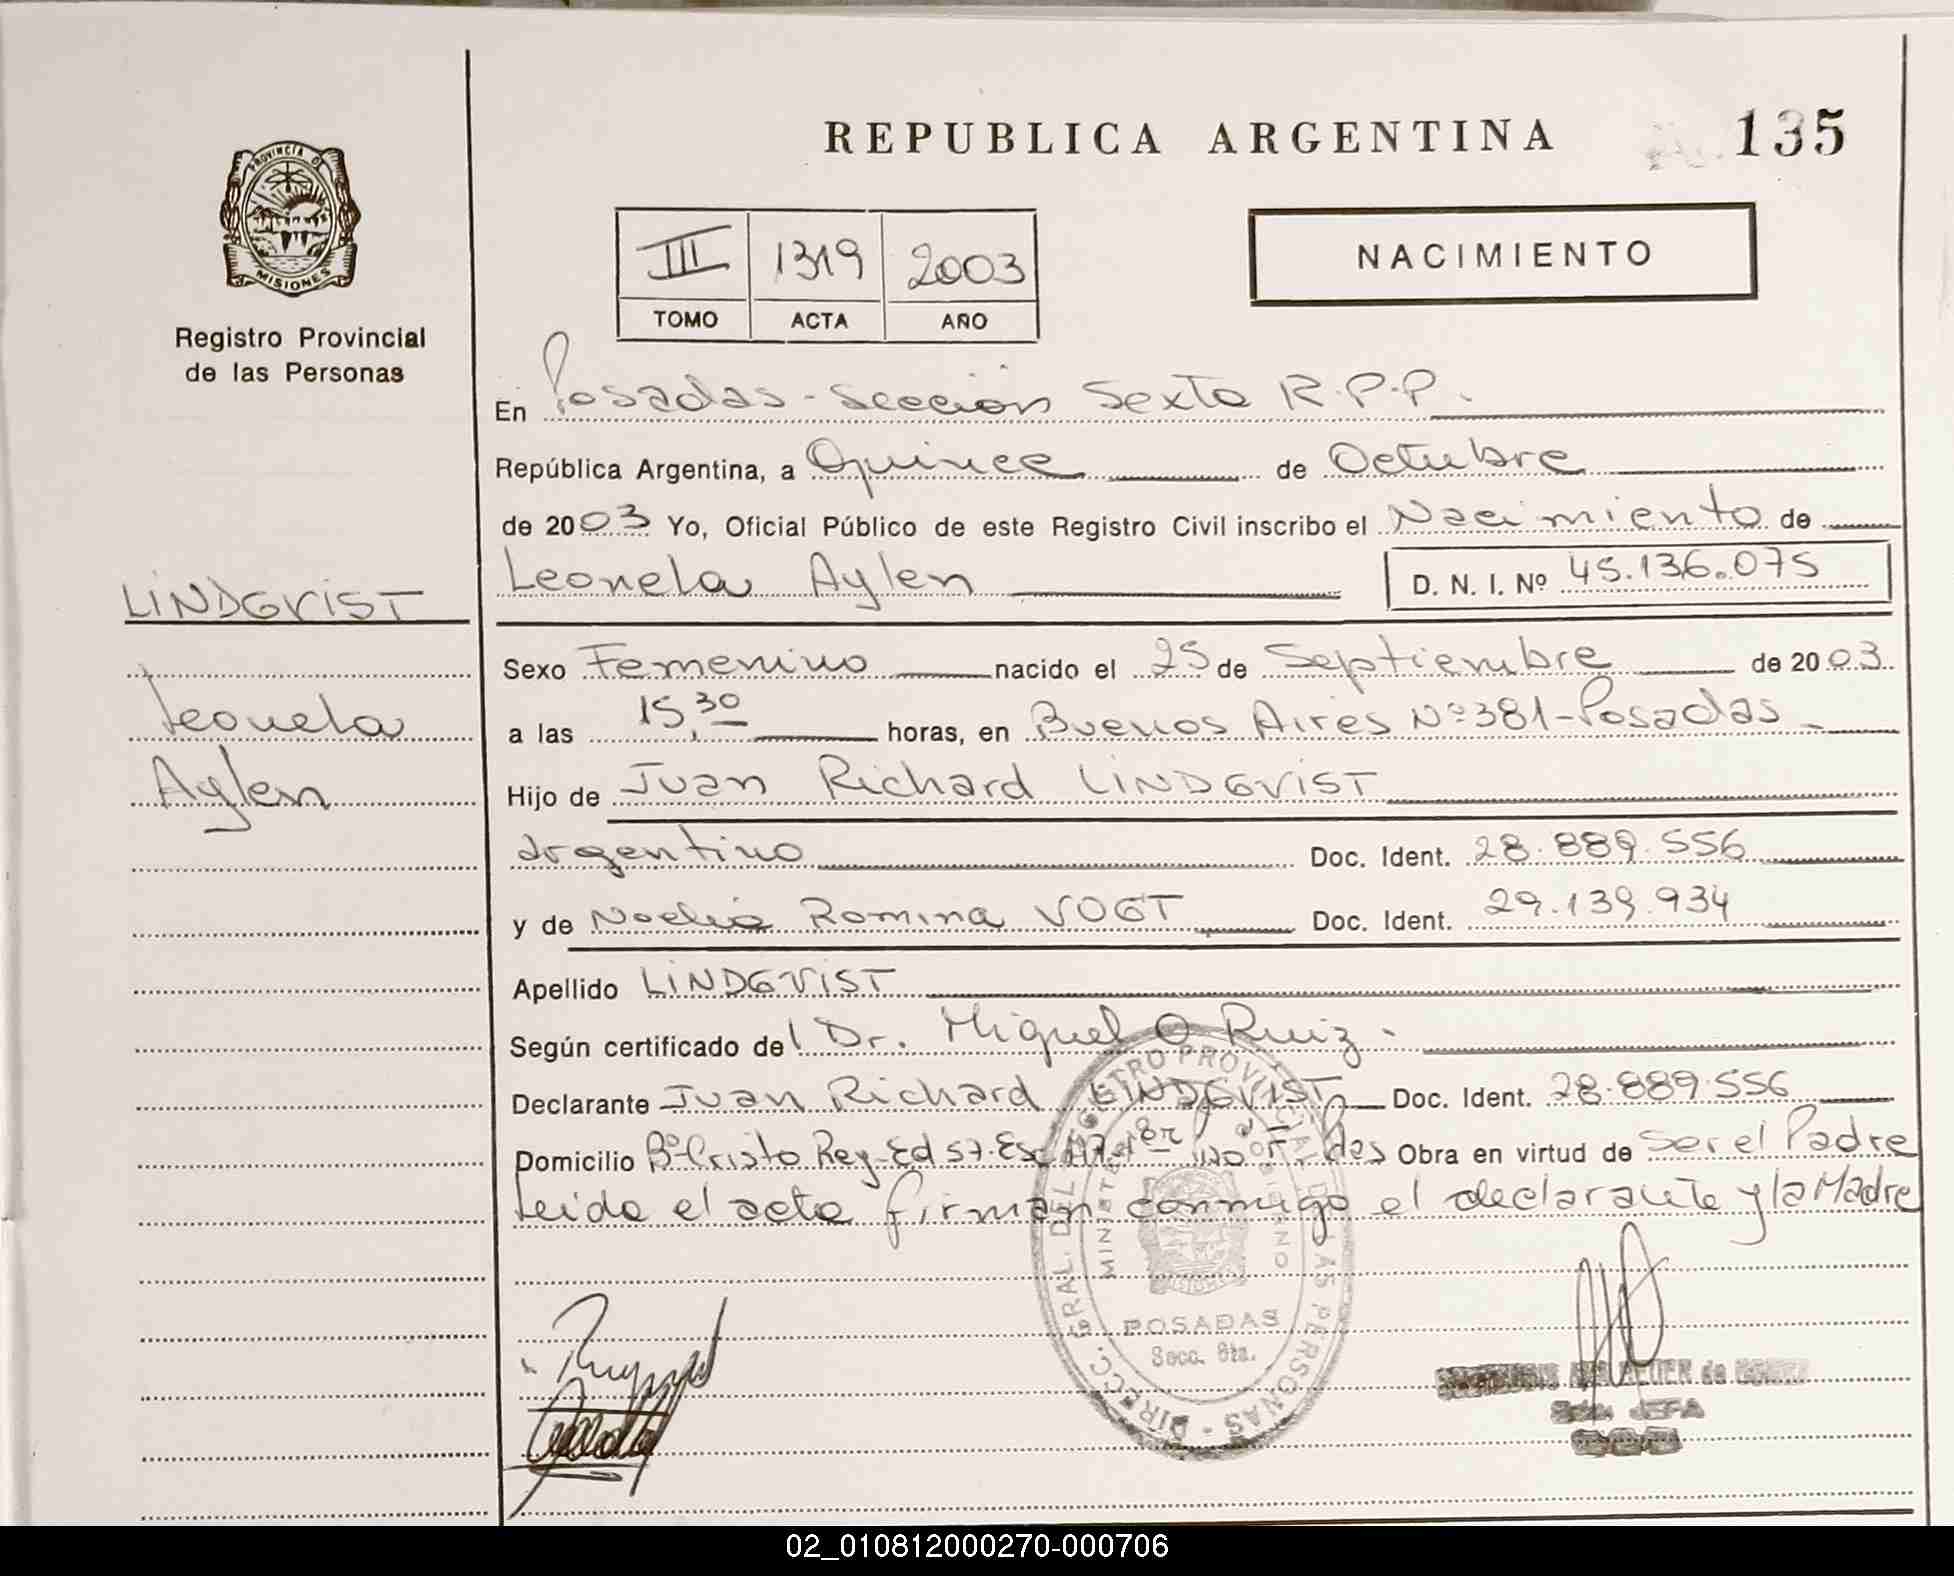 REPUBLICA ARGENTINA
135
PROVINCIA DE
MISIONES
Registro Provincial
de las Personas
III 1319 2003
TOMO ACTA AÑO
NACIMIENTO
En Posadas - Sección Sexta R.P.P.
República Argentina, a Quince de Octubre
de 2003 Yo, Oficial Público de este Registro Civil inscribo el Nacimiento de
Leonela Aylen D. N. I. Nº 45.136.075
LINDQVIST
Leonela
Aylen
Sexo Femenino nacido el 25 de Septiembre de 2003
a las 15,30 horas, en Buenos Aires Nº 381 - Posadas
Hijo de Juan Richard LINDQVIST
argentino Doc. Ident. 28.889.556
y de Noelia Romina VOGT Doc. Ident. 29.139.934
Apellido LINDQVIST
Según certificado del Dr. Miguel O Ruiz.
Declarante Juan Richard LINDQVIST Doc. Ident. 28.889.556
Domicilio Bº Cristo Rey - Ed 57 - Esc Obra en virtud de ser el Padre
Leida el acta firman conmigo el declarante y la Madre
DIRECC. GRAL. DEL REGISTRO PROVINCIAL DE LAS PERSONAS
MINISTERIO DE GOBIERNO
MISIONES
POSADAS
Secc. 6ta.
JEFA
02_010812000270-000706